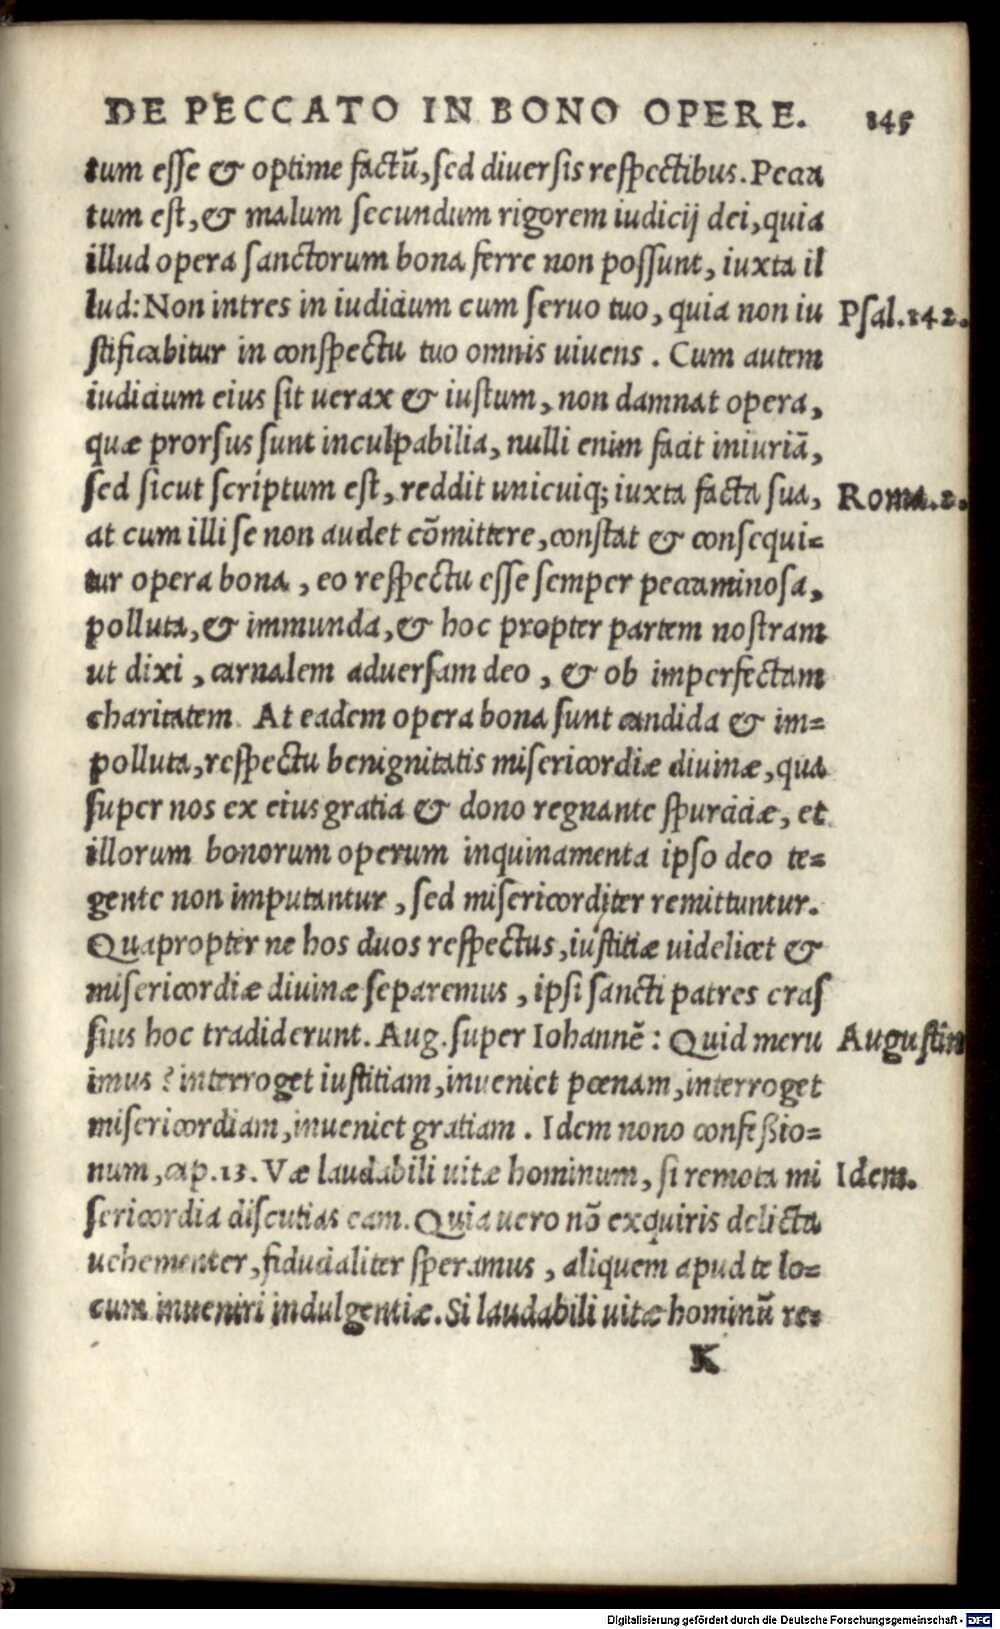 DE PECCATO IN BONO OPERE. 145
tum esse & optime factū, sed diuersis respectibus. Pecca
tum est, & malum secundum rigorem iudicij dei, quia
illud opera sanctorum bona ferre non possunt, iuxta il
lud: Non intres in iudicium cum seruo tuo, quia non iu Psal. 142.
stificabitur in conspectu tuo omnis uiuens. Cum autem
iudicium eius sit uerax & iustum, non damnat opera,
quæ prorsus sunt inculpabilia, nulli enim facit iniuriā,
sed sicut scriptum est, reddit unicuiq; iuxta facta sua, Roma. 2.
at cum illi se non audet cōmittere, constat & consequi=
tur opera bona, eo respectu esse semper peccaminosa,
polluta, & immunda, & hoc propter partem nostram
ut dixi, carnalem aduersam deo, & ob imperfectam
charitatem. At eadem opera bona sunt candida & im=
polluta, respectu benignitatis misericordiæ diuinæ, qua
super nos ex eius gratia & dono regnante spurciciæ, et
illorum bonorum operum inquinamenta ipso deo te=
gente non imputantur, sed misericorditer remittuntur.
Quapropter ne hos duos respectus, iustitiæ uidelicet &
misericordiæ diuinæ separemus, ipsi sancti patres cras
sius hoc tradiderunt. Aug. super Iohannē: Quid meru Augustin
imus? interroget iustitiam, inueniet pœnam, interroget
misericordiam, inueniet gratiam. Idem nono confessio=
num, cap. 13. Væ laudabili uitæ hominum, si remota mi Idem.
sericordia discutias eam. Quia uero nō exquiris delicta
uehementer, fiducialiter speramus, aliquem apud te lo=
cum inueniri indulgentiæ. Si laudabili uitæ hominū re=
K
Digitalisierung gefördert durch die Deutsche Forschungsgemeinschaft - DFG